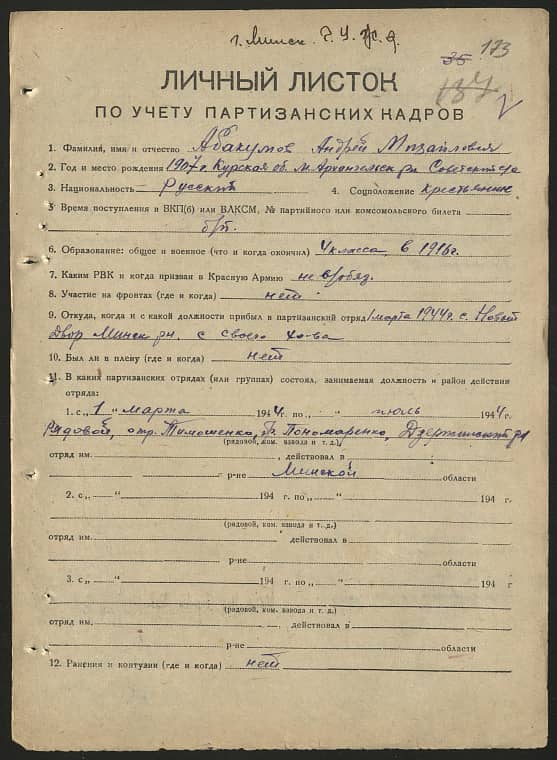 г. Минск.
35 173
137
ЛИЧНЫЙ ЛИСТОК
ПО УЧЕТУ ПАРТИЗАНСКИХ КАДРОВ
1. Фамилия, имя и отчество Абакумов Андрей Михайлович
2. Год и место рождения 1907 г. Курская об. Советский
3. Национальность Русский 4. Соцположение крестьянин
5 Время поступления в ВКП(б) или ВЛКСМ, № партийного или комсомольского билета
б/п.
6. Образование: общее и военное (что и когда окончил) 4 класса, в 1918 г.
7. Каким РВК и когда призван в Красную Армию невобяз.
8. Участие на фронтах (где и когда) нет
9. Откуда, когда и с какой должности прибыл в партизанский отряд 1 марта 1944 г. с. Новый
Двор Минск рн. с своего хо-ва
10. Был ли в плену (где и когда) нет
11. В каких партизанских отрядах (или группах) состоял, занимаемая должность и район действия
отряда:
1. с „ 1 " марта 1944 г. по „ " июль 1944 г.
Рядовой, отр. Тимошенко, бр. Пономаренко, Дзержинский рн
(рядовой, ком. взвода и т. д.)
отряд им. , действовал в
р-не Минской области
2. с „ " 194 г. по „ " 194 г.
(рядовой, ком. взвода и т. д.)
отряд им. действовал в
р-не области
3. с „ " 194 г. по „ " 194 г
(рядовой, ком. взвода и т. д.)
отряд им. действовал в
р-не области
12. Ранения и контузии (где и когда) нет